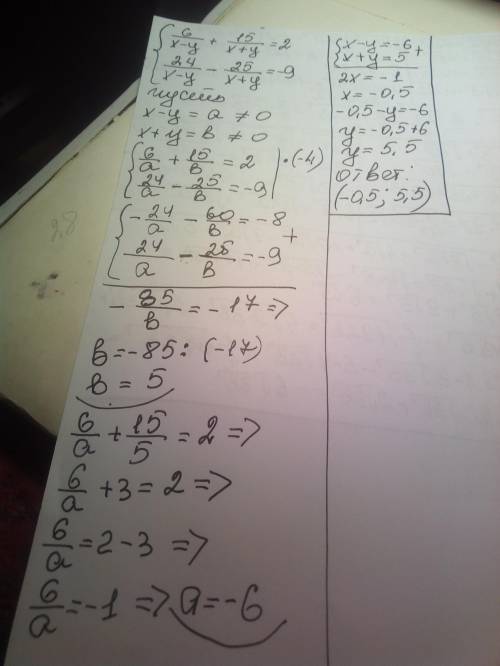 { 6/(x-y) + 15/(x+y) = 2
{ 24/(x-y) - 25/(x+y) = -9
пусть
x-y = a ≠ 0
x+y = в ≠ 0
{ 6/a + 15/в = 2 | ·(-4)
{ 24/a - 25/в = -9 |
{ -24/a - 60/в = -8
+
{ 24/a - 25/в = -9
- 85/в = -17 =>
в = -85 : (-17)
в = 5
6/a + 15/5 = 2 =>
6/a + 3 = 2 =>
6/a = 2-3 =>
6/a = -1 => a = -6
{ x-y = -6
+
{ x+y = 5
2x = -1
x = -0,5
-0,5-y = -6
y = -0,5+6
y = 5,5
ответ:
(-0,5; 5,5)